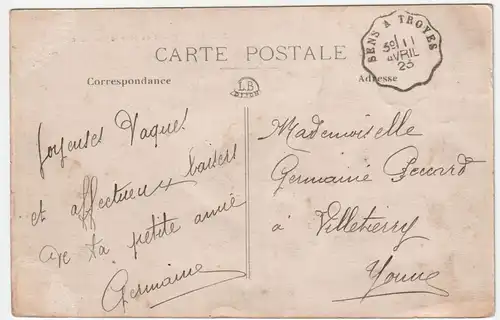 CARTE POSTALE
Correspondance
Adresse
LB
DIJON
SENS A TROYES
11
AVRIL
23
Joyeuses Paques
et affectueux baisers
de ta petite amie
Germaine
Mademoiselle
Germaine
à Villethierry
Yonne